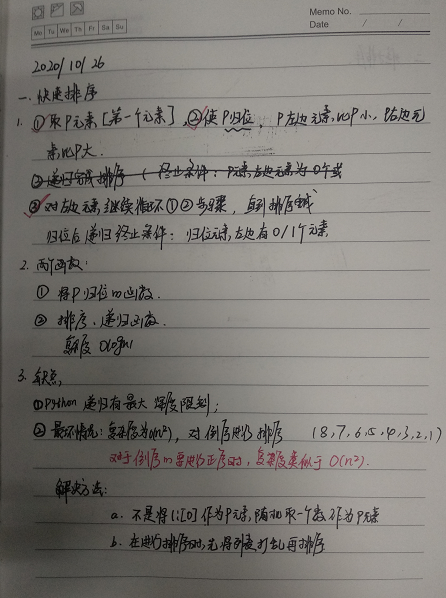 Memo No.
Mo Tu We Th Fr Sa Su
Date / /
2020/10/26
一、快速排序
1. ①取P元素[第一个元素],②使P归位,P左边元素比P小,P右边元
素比P大.
③递归完成排序(终止条件:P元素左边元素为0个或
③对左边元素继续循环①②步骤,直到排序完成
归位后递归终止条件:归位元素左边有0/1个元素
2. 两个函数:
①将P归位的函数.
②排序、递归函数.
复杂度 O(logn)
3. 缺点
①Python递归有最大深度限制;
②最坏情况:复杂度为O(n²),对倒序进行排序 (8,7,6,5,4,3,2,1)
对于倒序的要进行正序时,复杂度类似于O(n²).
解决方法:
a. 不是将li[0]作为P元素,随机取一个数作为P元素
b. 在进行排序时,先将列表打乱再排序